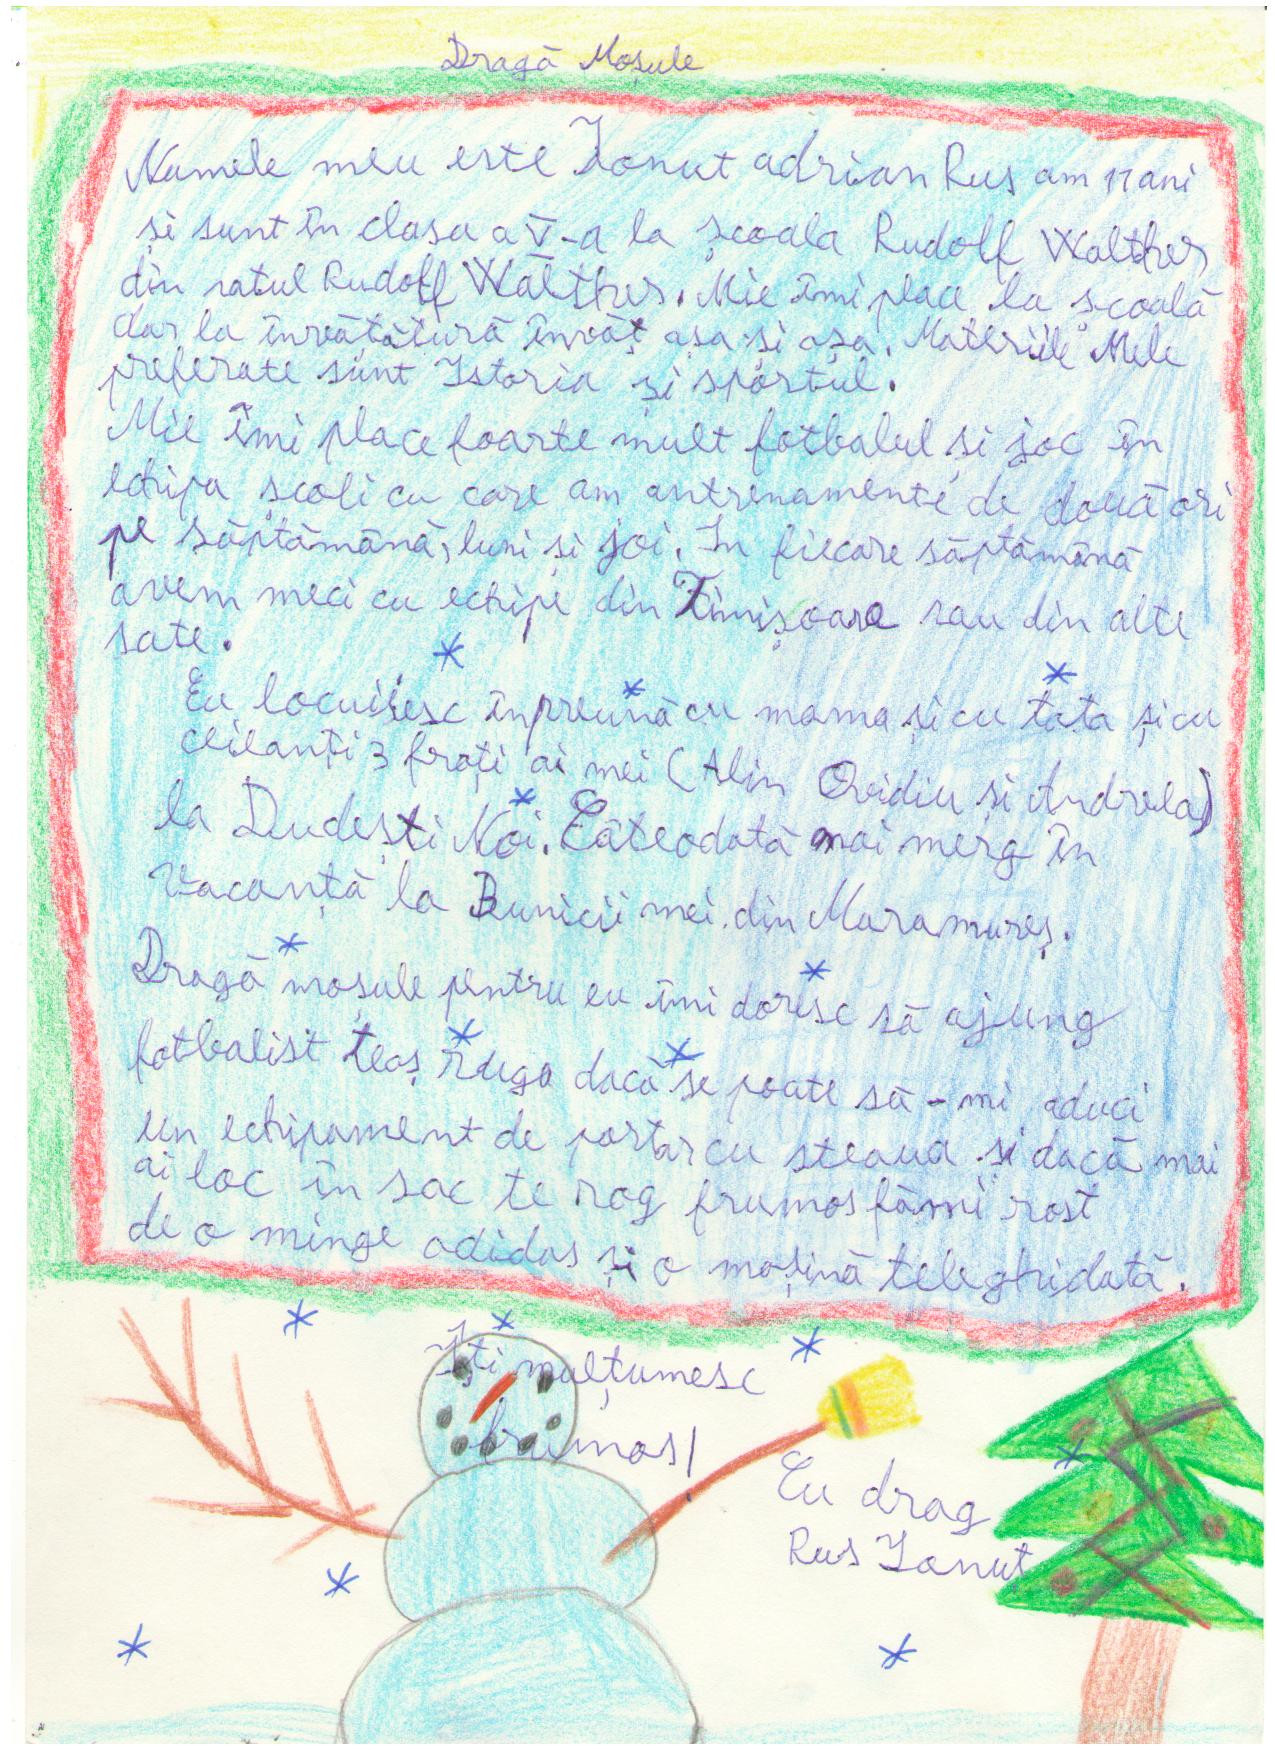 Dragă Moșule
Numele meu este Ionut adrian Rus am 11 ani
și sunt în clasa a V-a la școala Rudolf Walther
din satul Rudolf Walther. Mie îmi place la școală
dar la învătătură învăț așa și așa. Materiile Mele
preferate sunt Istoria și sportul.
Mie îmi place foarte mult fotbalul și joc în
echipa școli cu care am antrenamente de două ori
pe săptămână, luni și joi. In fiecare săptămână
avem meci cu echipe din Timișoara sau din alte
sate.
Eu locuiesc înpreună cu mama și cu tata și cu
ceilanți 3 frați ai mei (Alin Ovidiu și Andreela)
la Dudești Noi. Câteodată mai merg în
vacanță la Bunicii mei din Maramureș.
Dragă moșule pentru eu îmi doresc să ajung
fotbalist teaș ruga dacă se poate să-mi aduci
un echipament de portar cu steaua și dacă mai
ai loc în sac te rog frumos fămi rost
de o minge adidas și o mașină teleghidată.
Iți mulțumesc
frumos!
Cu drag
Rus Ionut